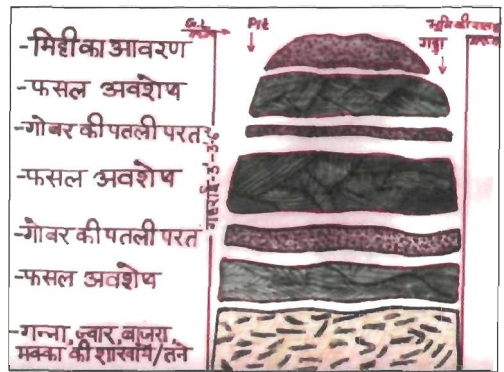 G.L.
Pit
भूमि की सतह
गड्ढा
-मिट्टी का आवरण
-फसल अवशेष
-गोबर की पतली परत
-फसल अवशेष
-गोबर की पतली परत
-फसल अवशेष
-गन्ना, ज्वार, बाजरा,
मक्का की शाखायें/तने
गहराई-3'-3.6'